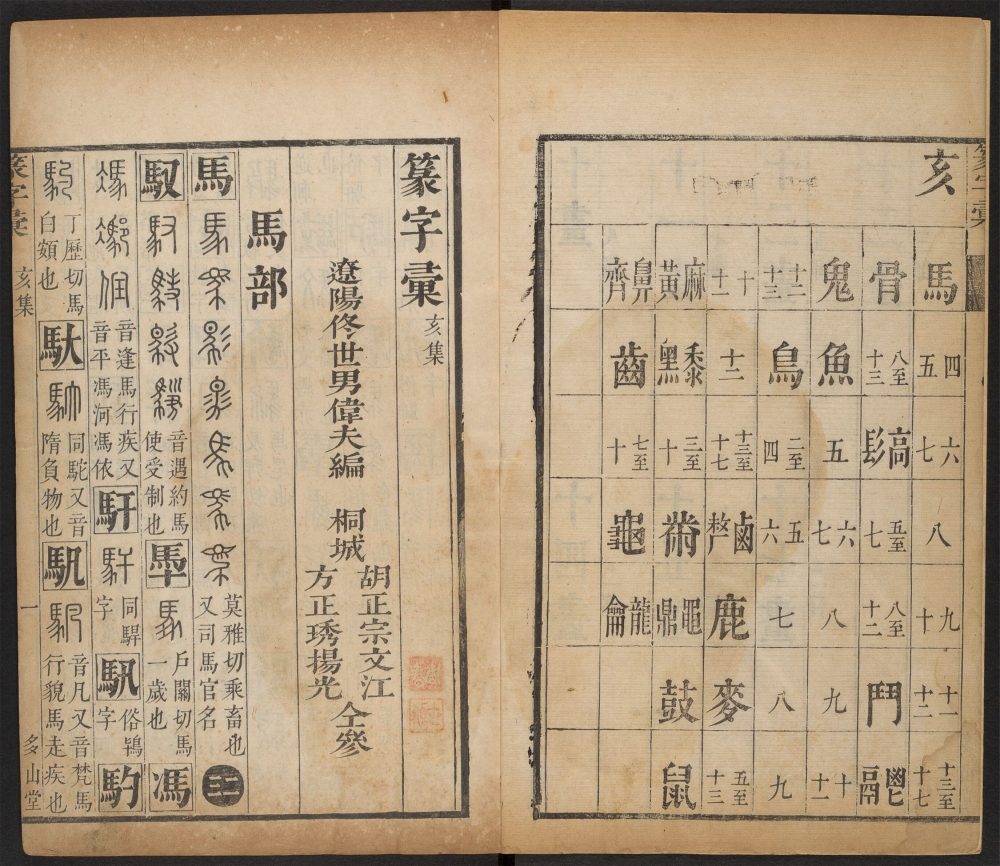 篆字彙
亥
馬 四 五 六 七 八 九 十 十一 十二 十三至十七
骨 八至十三 高 髟 五至七 八至十二 鬥 鬯 鬲
鬼 魚 五 六 七 八 九 十 十一
十二 十三 鳥 二至四 五 六 七 八 九
十 十一 十二 十三至十七 鹵 鹿 麥 五至十三
麻 黃 黍 黑 三至十 黹 黽 鼎 鼓 鼠
鼻 齊 齒 七至十 龜 龍 龠
篆字彙 亥集
遼陽佟世男偉夫編 桐城 胡正宗文江 方正琇揚光 仝參
馬部
馬 莫雅切乘畜也又司馬官名
馭 音遇約馬使受制也 戶關切馬一歲也 馮
音逢馬行疾又音平馮河馮依 馯 同駻字 俗鴇字 馰
丁歷切馬白頟也 馱 同駝又音隋負物也 音凡又音梵馬行貌馬走疾也
篆字彙 亥集 一 多山堂